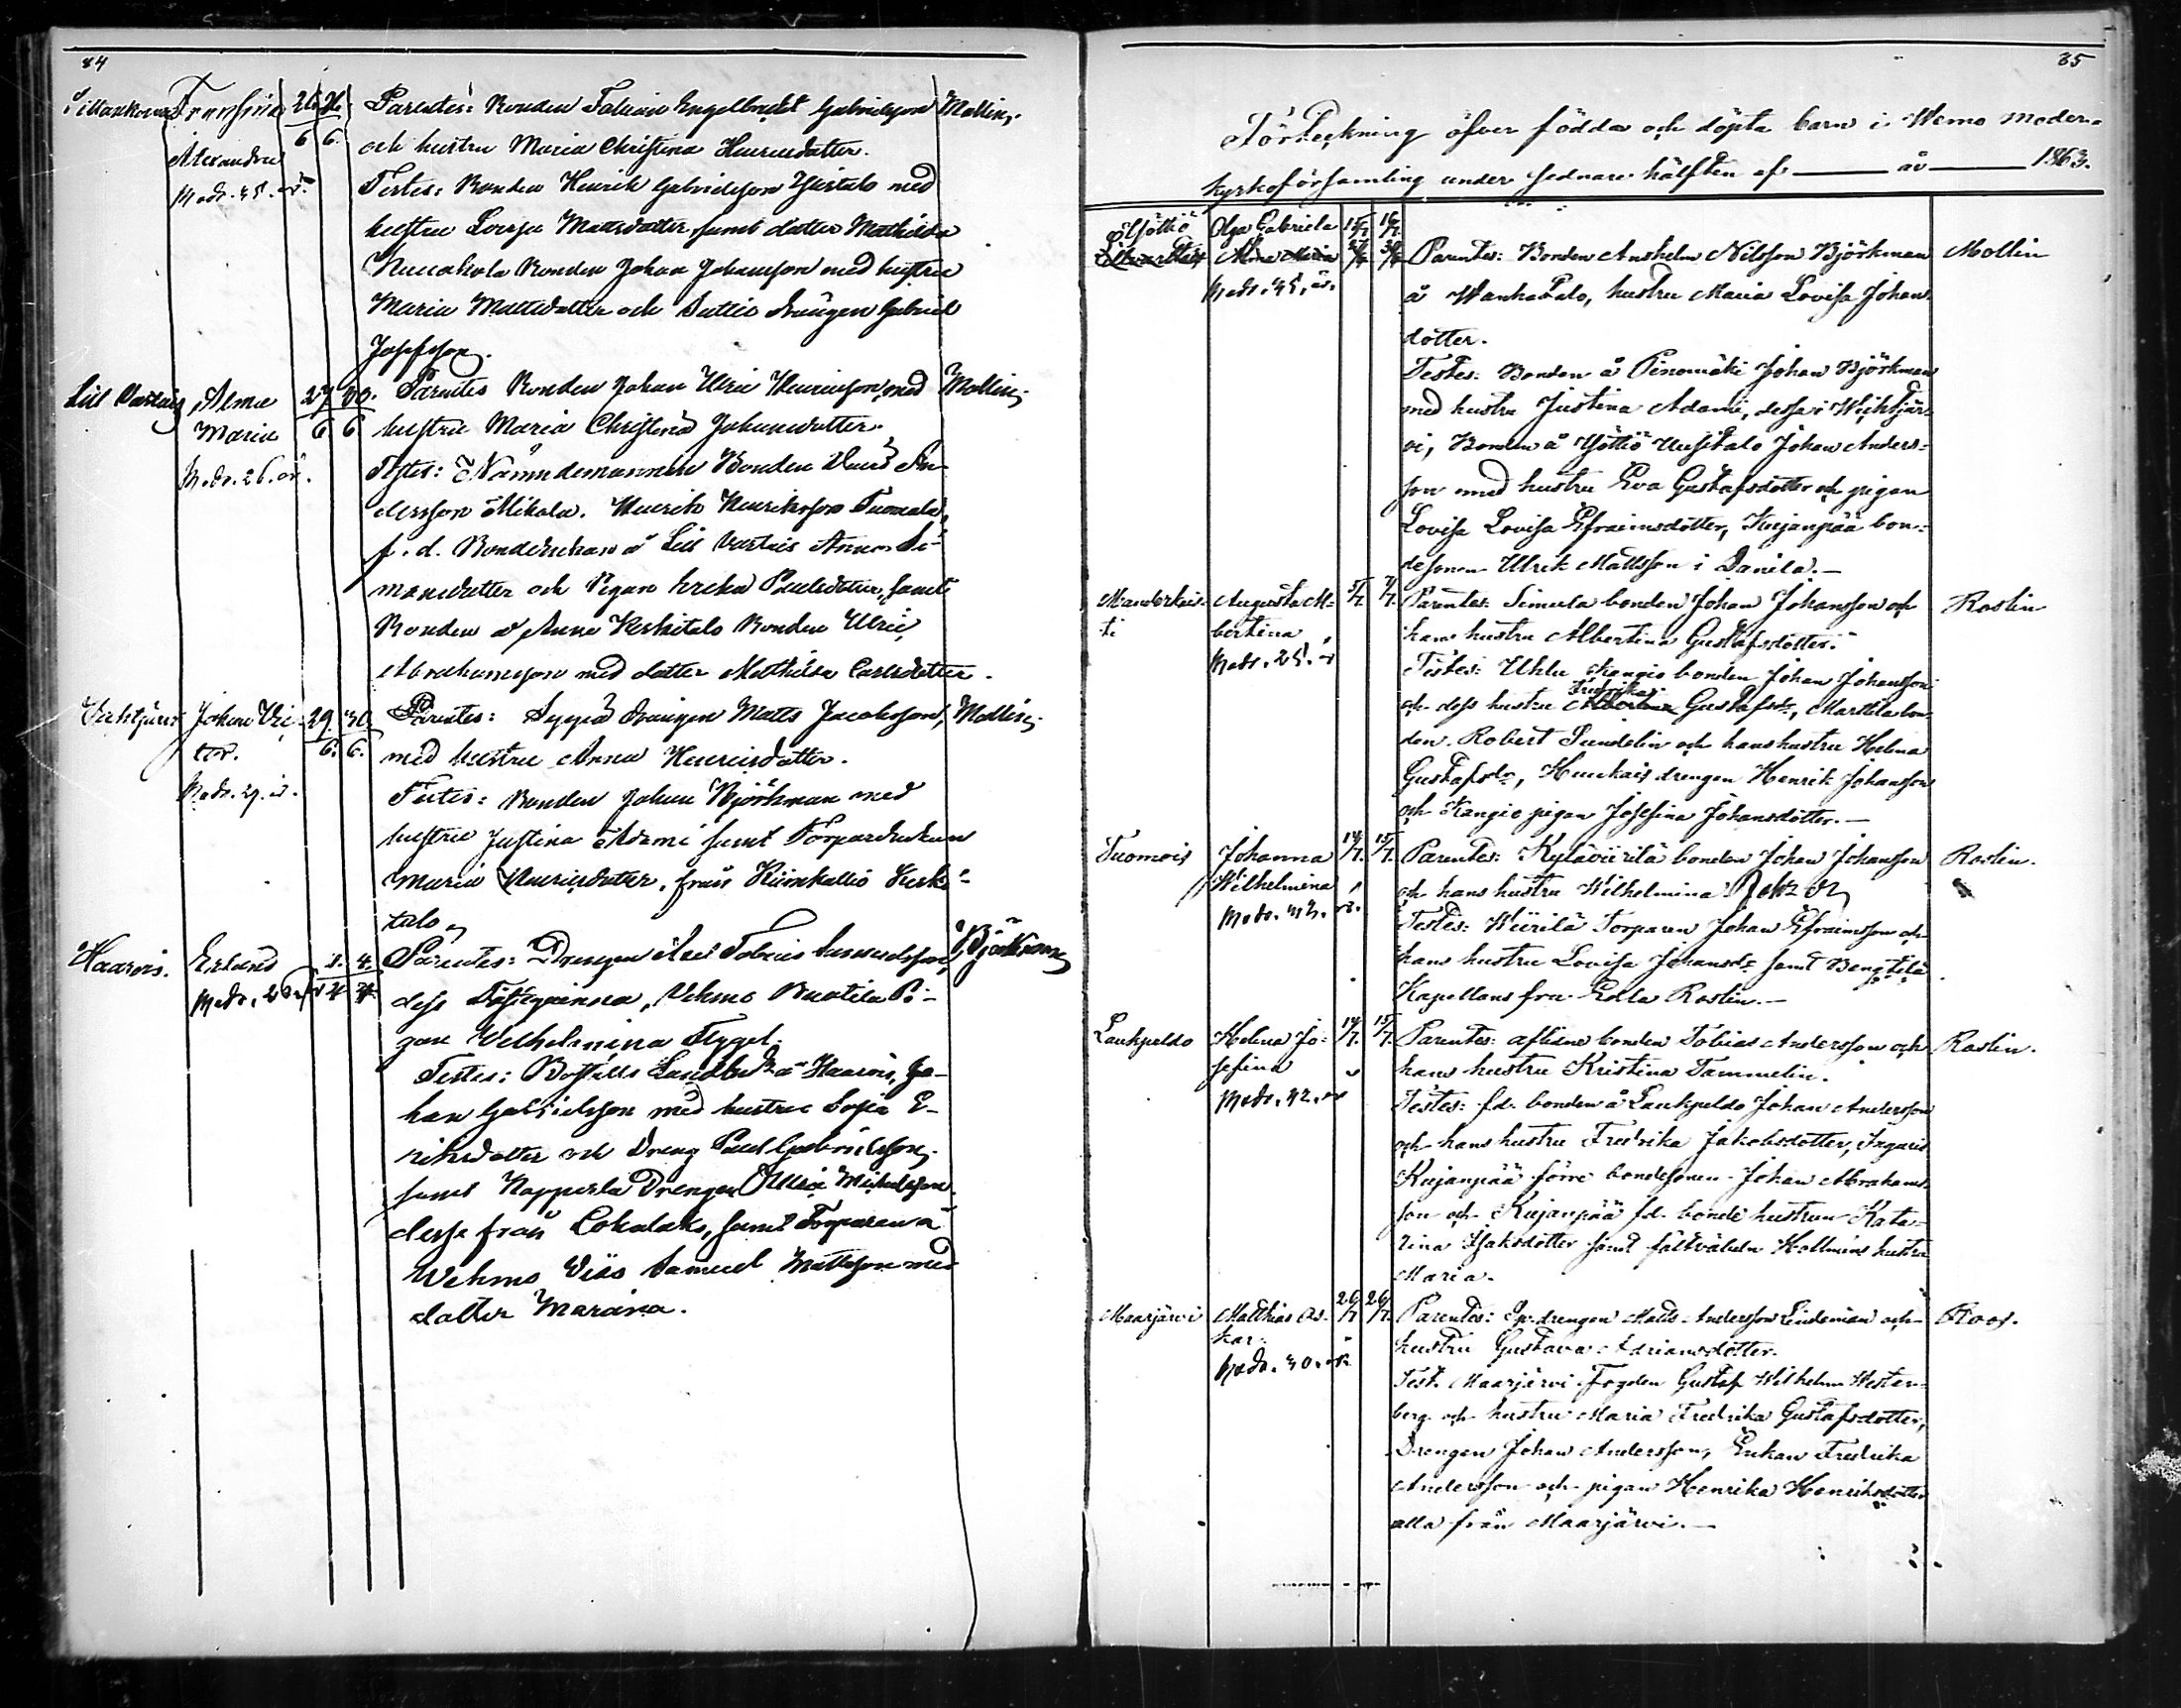 84
Fransina
Alexandra
Modr. 45. år
26 26
6 6.
Parentes: Bonden Tobias Engelbrekt Gabrielsson
och hustru Maria Christina Henricsdotter.
Testes: Bonden Henrik Gabrielsson Yhistalo med
hustru Lovisa Mattsdotter, samt dotter Mathilda
Bonden Johan Johansson med hustru
Maria Mattsdotter och drängen Gabriel
Josefsson.
Mollin.
Lill Vartsais
Alma
Maria
Modr. 26. år.
27 30.
6 6
Parentes Bonden Johan Ulric Henricsson, med
hustru Maria Christina Johansdotter.
Testes: Nämndemannen Bonden An-
dersson Mikola. Henrik Henriksson Tuomala,
f. d. Bondeenkan å Lill Vartsais Anna Si-
monsdotter och Pigan Erika Paulsdotter, samt
Bonden å Anne Keskitalo Bonden Ulric
Abrahamsson med dotter Mathilda Carlsdotter.
Mollin.
Johan Vic-
tor.
Modr. 29. år.
29. 30.
6. 6.
Parentes: drängen Matts Jacobsson,
med hustru Anna Henricsdotter.
Testes: Bonden Johan Björkman med
hustru Justina Adami samt Torpardenkan
Maria Henricsdotter, från Kiimkallio Keski-
talo.
Mollin.
Haarois.
Erland
Modr. 26 år
1. 4.
Parentes: Drengen Axel Tobias Samuelsson,
dess Fästeqvinna, Vehmo Puotila Pi-
gan Vilhelmina Flygel.
Testes: Boställs Landb. å Haarois, Jo-
han Gabrielsson med hustru Sofia E-
riksdotter och Dreng Paul Gabrielsson,
samt Nappusla Drengen Ulric Michelsson
desse från Lokalaks, samt Torparen å
Wehmo Viias Samuel Mattsson med
dotter Mariana.
Björkman
85
Förteckning öfver födda och döpta barn i Wemo moder-
kyrkoförsamling under sednare hälften af ——— år ——— 1863.
Yöttiö
Olga Gabriela
Alma Maria
Modr. 45. år.
15/7 16/7
27/6 30/6
Parentes: Bonden Anshelm Nilsson Björkman
å Wanhatalo, hustru Maria Lovisa Johans-
dotter.
Testes: Bonden å Pinomäki Johan Björkman
med hustru Justina Adami, desse i Wichtjär-
vi, Bonden å Yöttiö Uusitalo Johan Anders-
son med hustru Eva Gustafsdotter och pigan
Lovisa Lovisa Efraimsdotter, Kujanpää bon-
desonen Ulrik Mattsson i Danila.—
Mollin
Manderkais-
ti
Augusta Al-
bertina
Modr. 25. år
5/7. 7/7.
Parentes: Simula bonden Johan Johansson och
hans hustru Albertina Gustafsdotter.
Testes: Uhlu Kangio bonden Johan Johansson
Fredrika
och dess hustru Albertina Gustafsdr, Marttila bon-
den Robert Sundelin och hans hustru Helena
Gustafsdr, Huukais drengen Henrik Johansson
och Kangio pigan Josefina Johansdotter.—
Roslin
Tuomois
Johanna
Wilhelmina
Modr. 43. år.
14/7. 15/7.
Parentes: Kyläviirilä bonden Johan Johansson
och hans hustru Wilhelmina
Testes: Wiirilä Torparen Johan Efraimsson och
hans hustru Lovisa Johansdr samt Bengtilä
Kapellans fru Erla Roslin.—
Roslin.
Laukpeldo
Helena Jo-
sefina
Modr. 42. år
14/7. 15/7.
Parentes: aflidne bonden Tobias Andersson och
hans hustru Kristina Tammelin.
Testes: f.d. bonden å Laukpeldo Johan Andersson
och hans hustru Fredrika Jakobsdotter, Ingaris
Kujanpää förre bondesonen Johan Abrahams-
son och Kujanpää f.d. bonde hustrun Kata-
rina Isaksdotter samt fältväbeln Hollméns hustru
Maria.
Roslin.
Maarjärvi
Matthias Os-
kar.
Modr. 30. år
26/7 26/7.
Parentes: Sp. drengen Matts Andersson Lindeman och
hustru Gustava Adriansdotter.
Test. Maarjärvi Fogden Gustaf Wilhelm Wester-
berg och hustru Maria Fredrika Gustafsdotter,
Drengen Johan Andersson, Enkan Fredrika
Andersson och pigan Henrika Henriksdotter
alla från Maarjärvi.—
Roos.